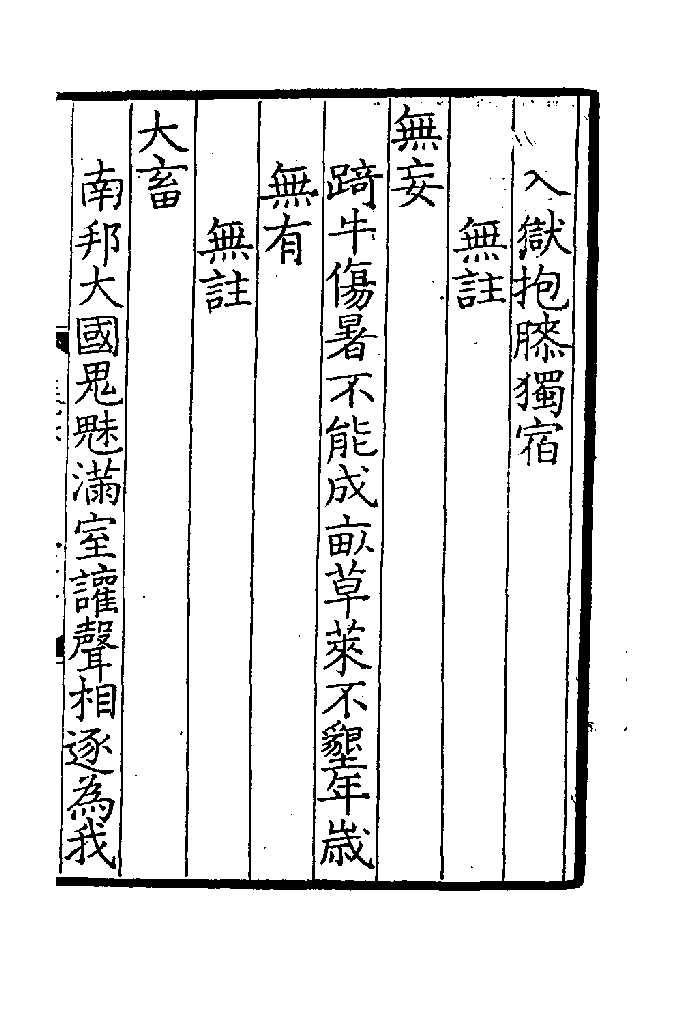 入獄抱膝獨宿
無註
無妄
踦牛傷暑不能成畝草萊不墾年歲
無有
無註
大畜
南邦大國鬼魅滿室讙聲相逐為我